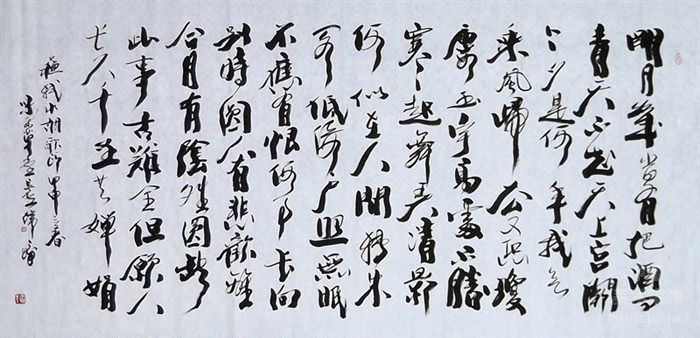 明月幾时有把酒问
青天不知天上宮闕
今夕是何年我欲
乘風歸去又恐瓊
樓玉宇高處不勝
寒起舞弄清影
何似在人間轉朱
閣低綺户照無眠
不應有恨何事长向
别時圆人有悲歡離
合月有陰晴圆缺
此事古難全但願人
长久千里共嬋娟
水調歌頭 甲申之春